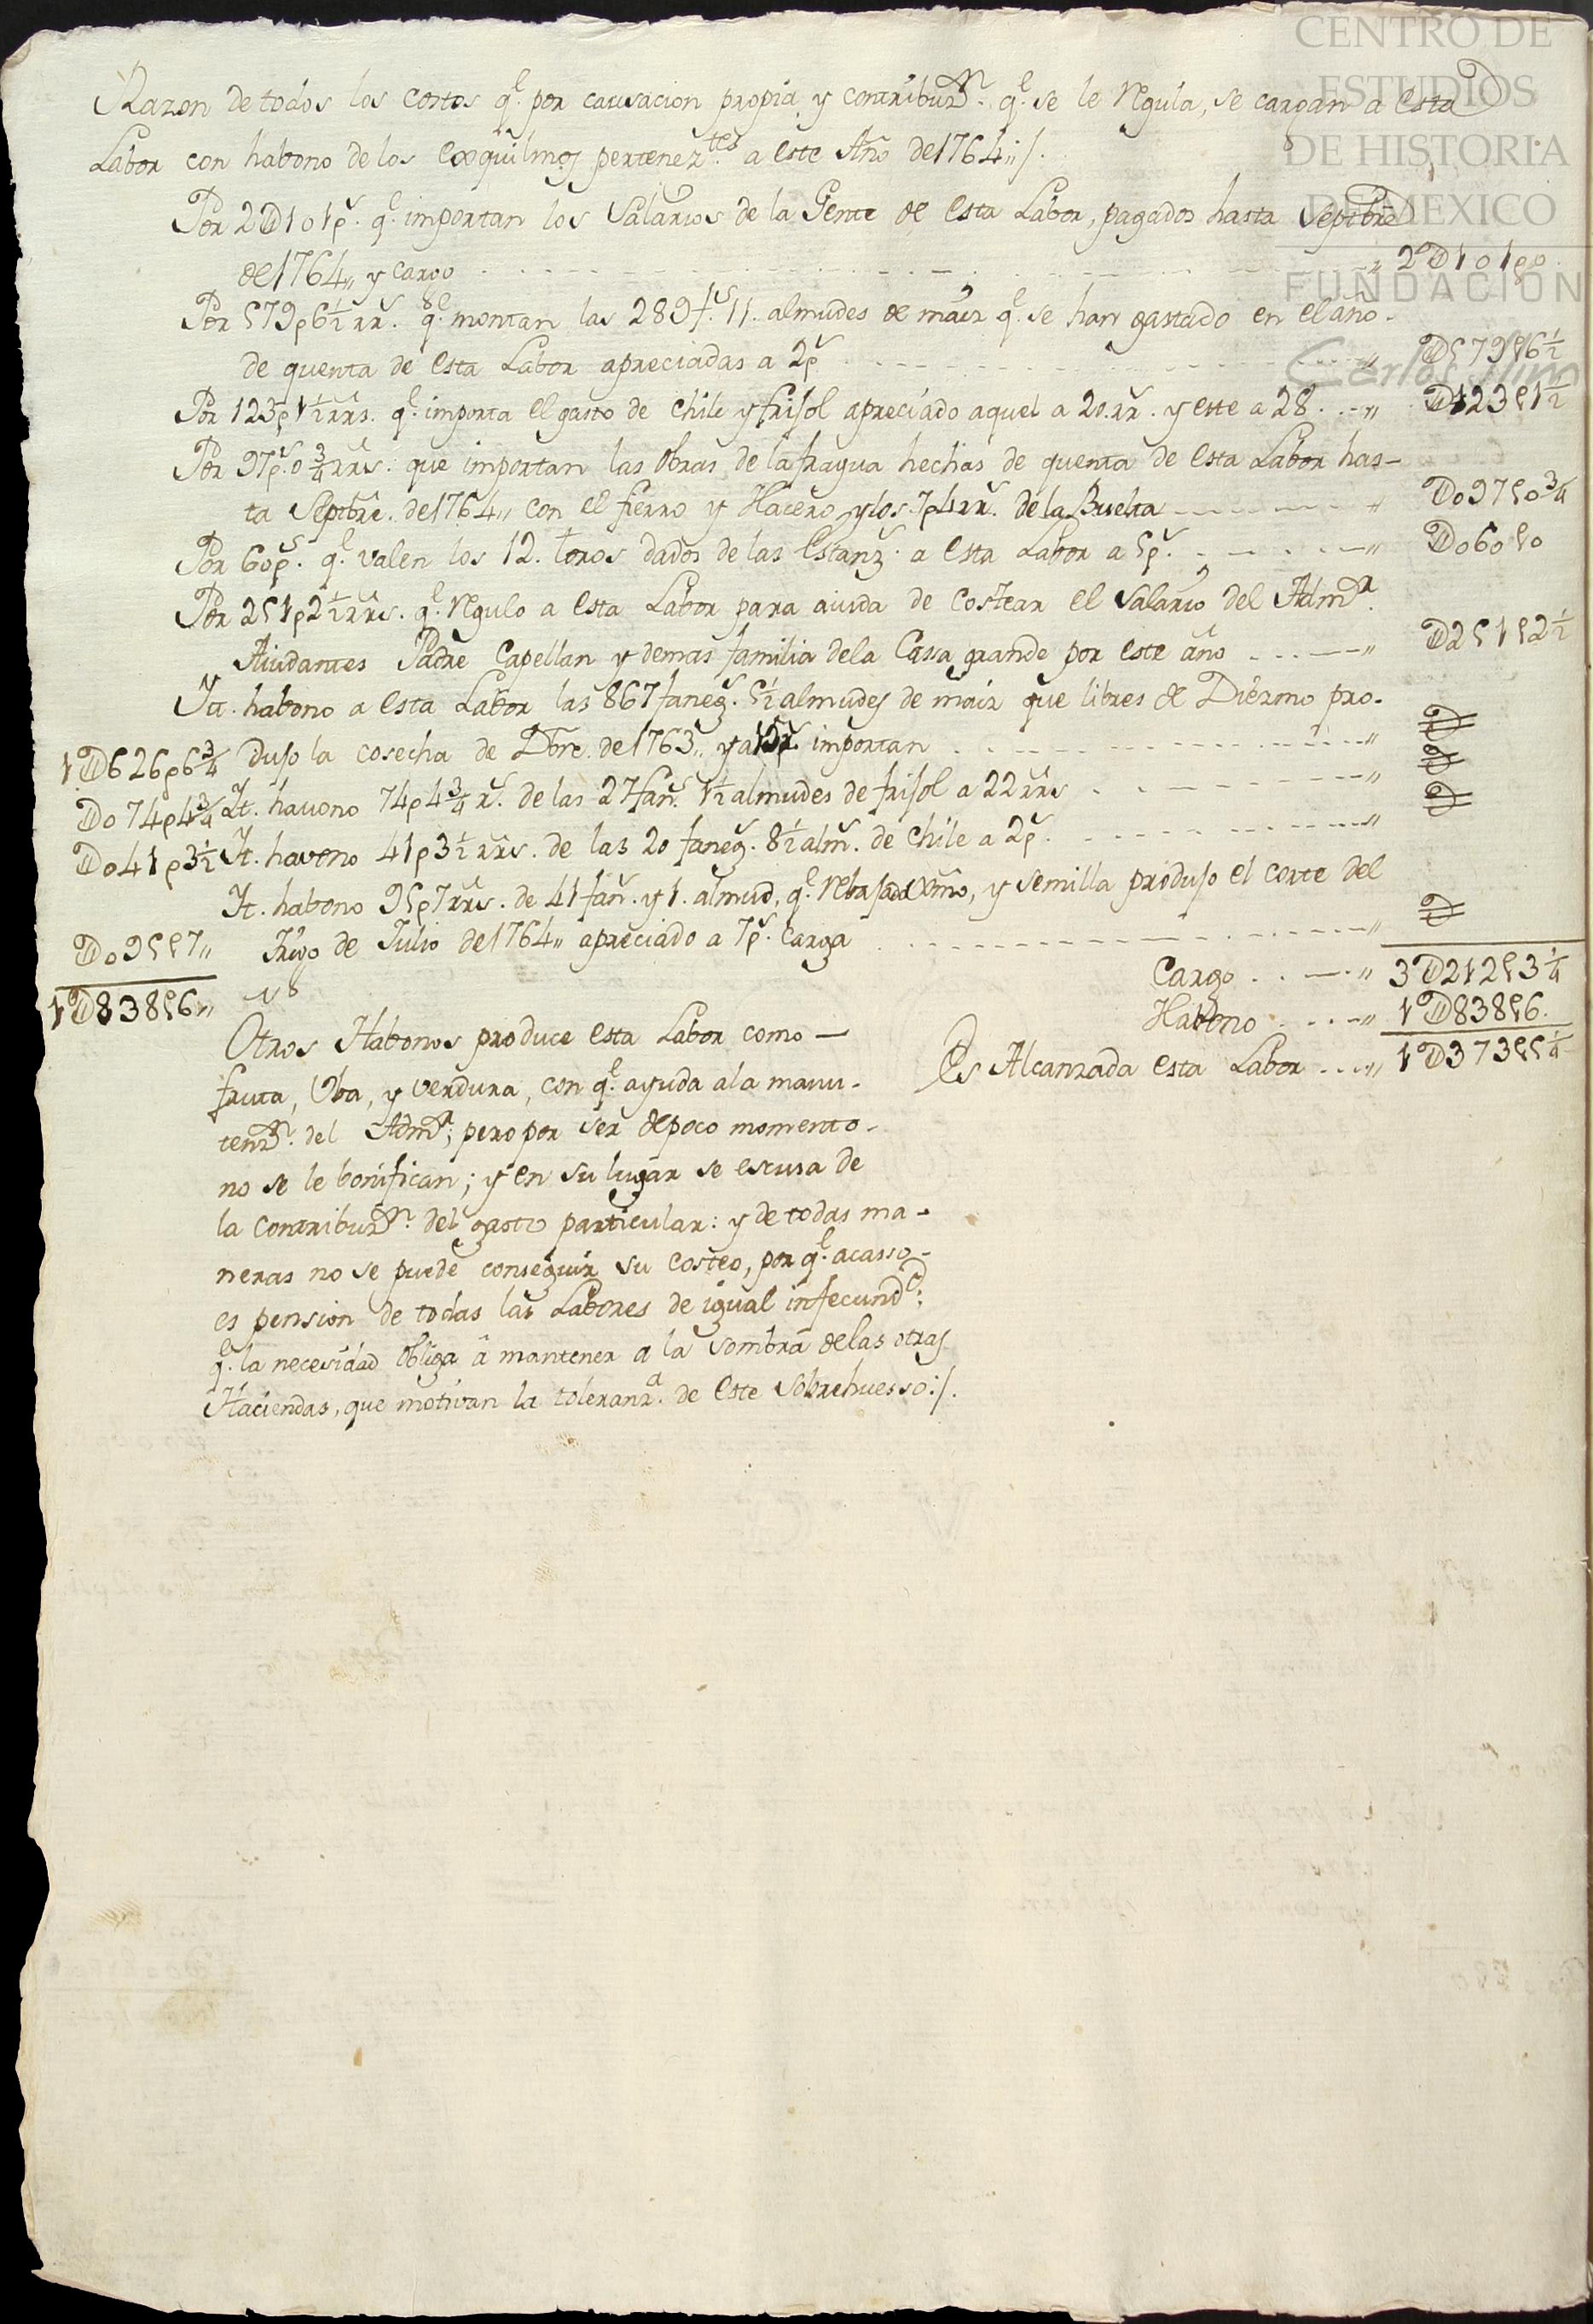 CENTRO DE
ESTUDIOS
DE HISTORIA
DE MEXICO
FUNDACION
Carlos Slim
Razon de todos los costos q.e por causacion propia y contribuz.n q.e se le regula, se cargan a esta
Labor con habono de los exquilmos pertenez.tes a este Año de 1764,,/.
Por 2U101p.s q.e importan los Salarios de la Gente de esta Labor, pagados hasta Septbre
de 1764,, y cargo ,, 2U101p0.
Por 579p6½rr.s q.e montan las 289f.s 11. almudes de maiz q.e se han gastado en el año
de quenta de esta Labor apreciadas a 2p.s ,, U579p6½
Por 123p1½rrs. q.e importa el gasto de chile y frisol apreciado aquel a 20.rr.s y este a 28. ,, U123p1½
Por 97p.s0¾rrs. que importan las obras de la fragua hechas de quenta de esta Labor has-
ta Septbre. de 1764,, con el fierro y Hacero y los 7p4rr.s de la Buelta ,, U097p0¾
Por 60p.s q.e valen los 12. toros dados de las Estanz.s a esta Labor a 5p.s ,, U060p0
Por 251p2½rrs. q.e regulo a esta Labor para aiuda de costear el Salario del Adm.r
Aiudantes Padre Capellan y demas familia dela Cassa grande por este año ,, U251p2½
Yt. habono a esta Labor las 867 faneg.s 5½ almudes de maiz que libres de Diezmo pro-
1U626p6¾ dujo la cosecha de Dbre. de 1763,, y a importan ,, U
U074p4¾ Yt. havono 74p4¾r.s de las 27 fan.s 1½ almudes de frisol a 22rrs ,, U
U041p3½ Yt. havono 41p3½rrs. de las 20 faneg.s 8½ alm.s de chile a 2p.s ,, U
Yt. habono 95p7rrs. de 41 fan.s y 1. almud, q.e rebajado Dzmo, y semilla produjo el corte del
U095p7,, trigo de Julio de 1764,, apreciado a 7p.s carga ,, U
1U838p6,,
Cargo ,, 3U212p3¼
Habono ,, 1U838p6.
Es Alcanzada esta Labor ,, 1U373p5¼
Otros Habonos produce esta Labor como
fruta, Uba, y verdura, con q.e ayuda ala manu-
tenz.n del Adm.r; pero por ser de poco momento
no se le bonifican; y en su lugar se escusa de
la contribuz.n del gasto particular: y de todas ma-
neras no se puede conseguir su costeo, por q.e acasso
es pension de todas las Labores de igual infecund.d;
q.e la necesidad obliga â mantener a la sombra delas otras
Haciendas, que motivan la toleranz.a de este Sobrehuesso:/.